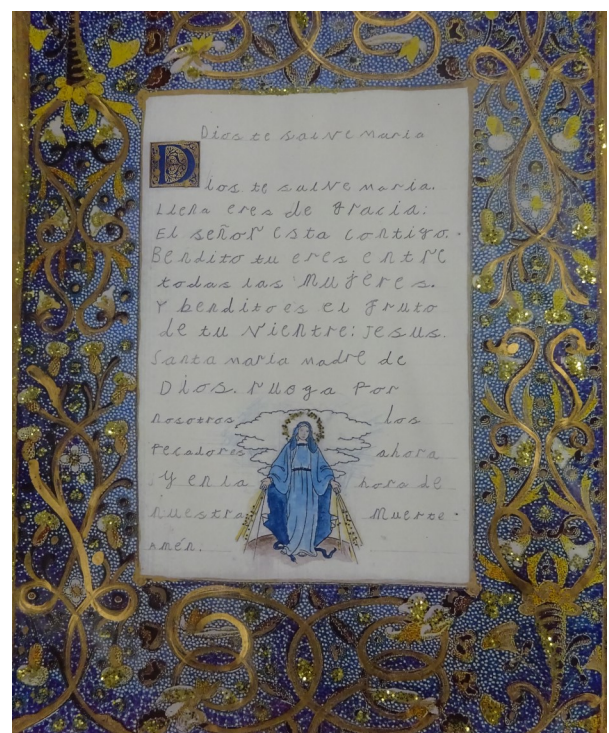 Dios te salve maria
Dios te salve maria.
Llena eres de gracia:
El señor esta contigo.
Bendito tu eres entre
todas las mujeres.
Y bendito es el fruto
de tu vientre: jesus.
Santa maria madre de
Dios. ruega por
nosotros los
pecadores ahora
y en la hora de
nuestra muerte.
amén.